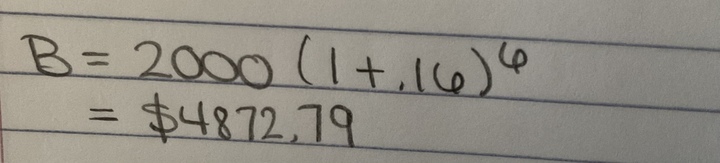 B = 2000 (1+.16)⁶
= $4872.79